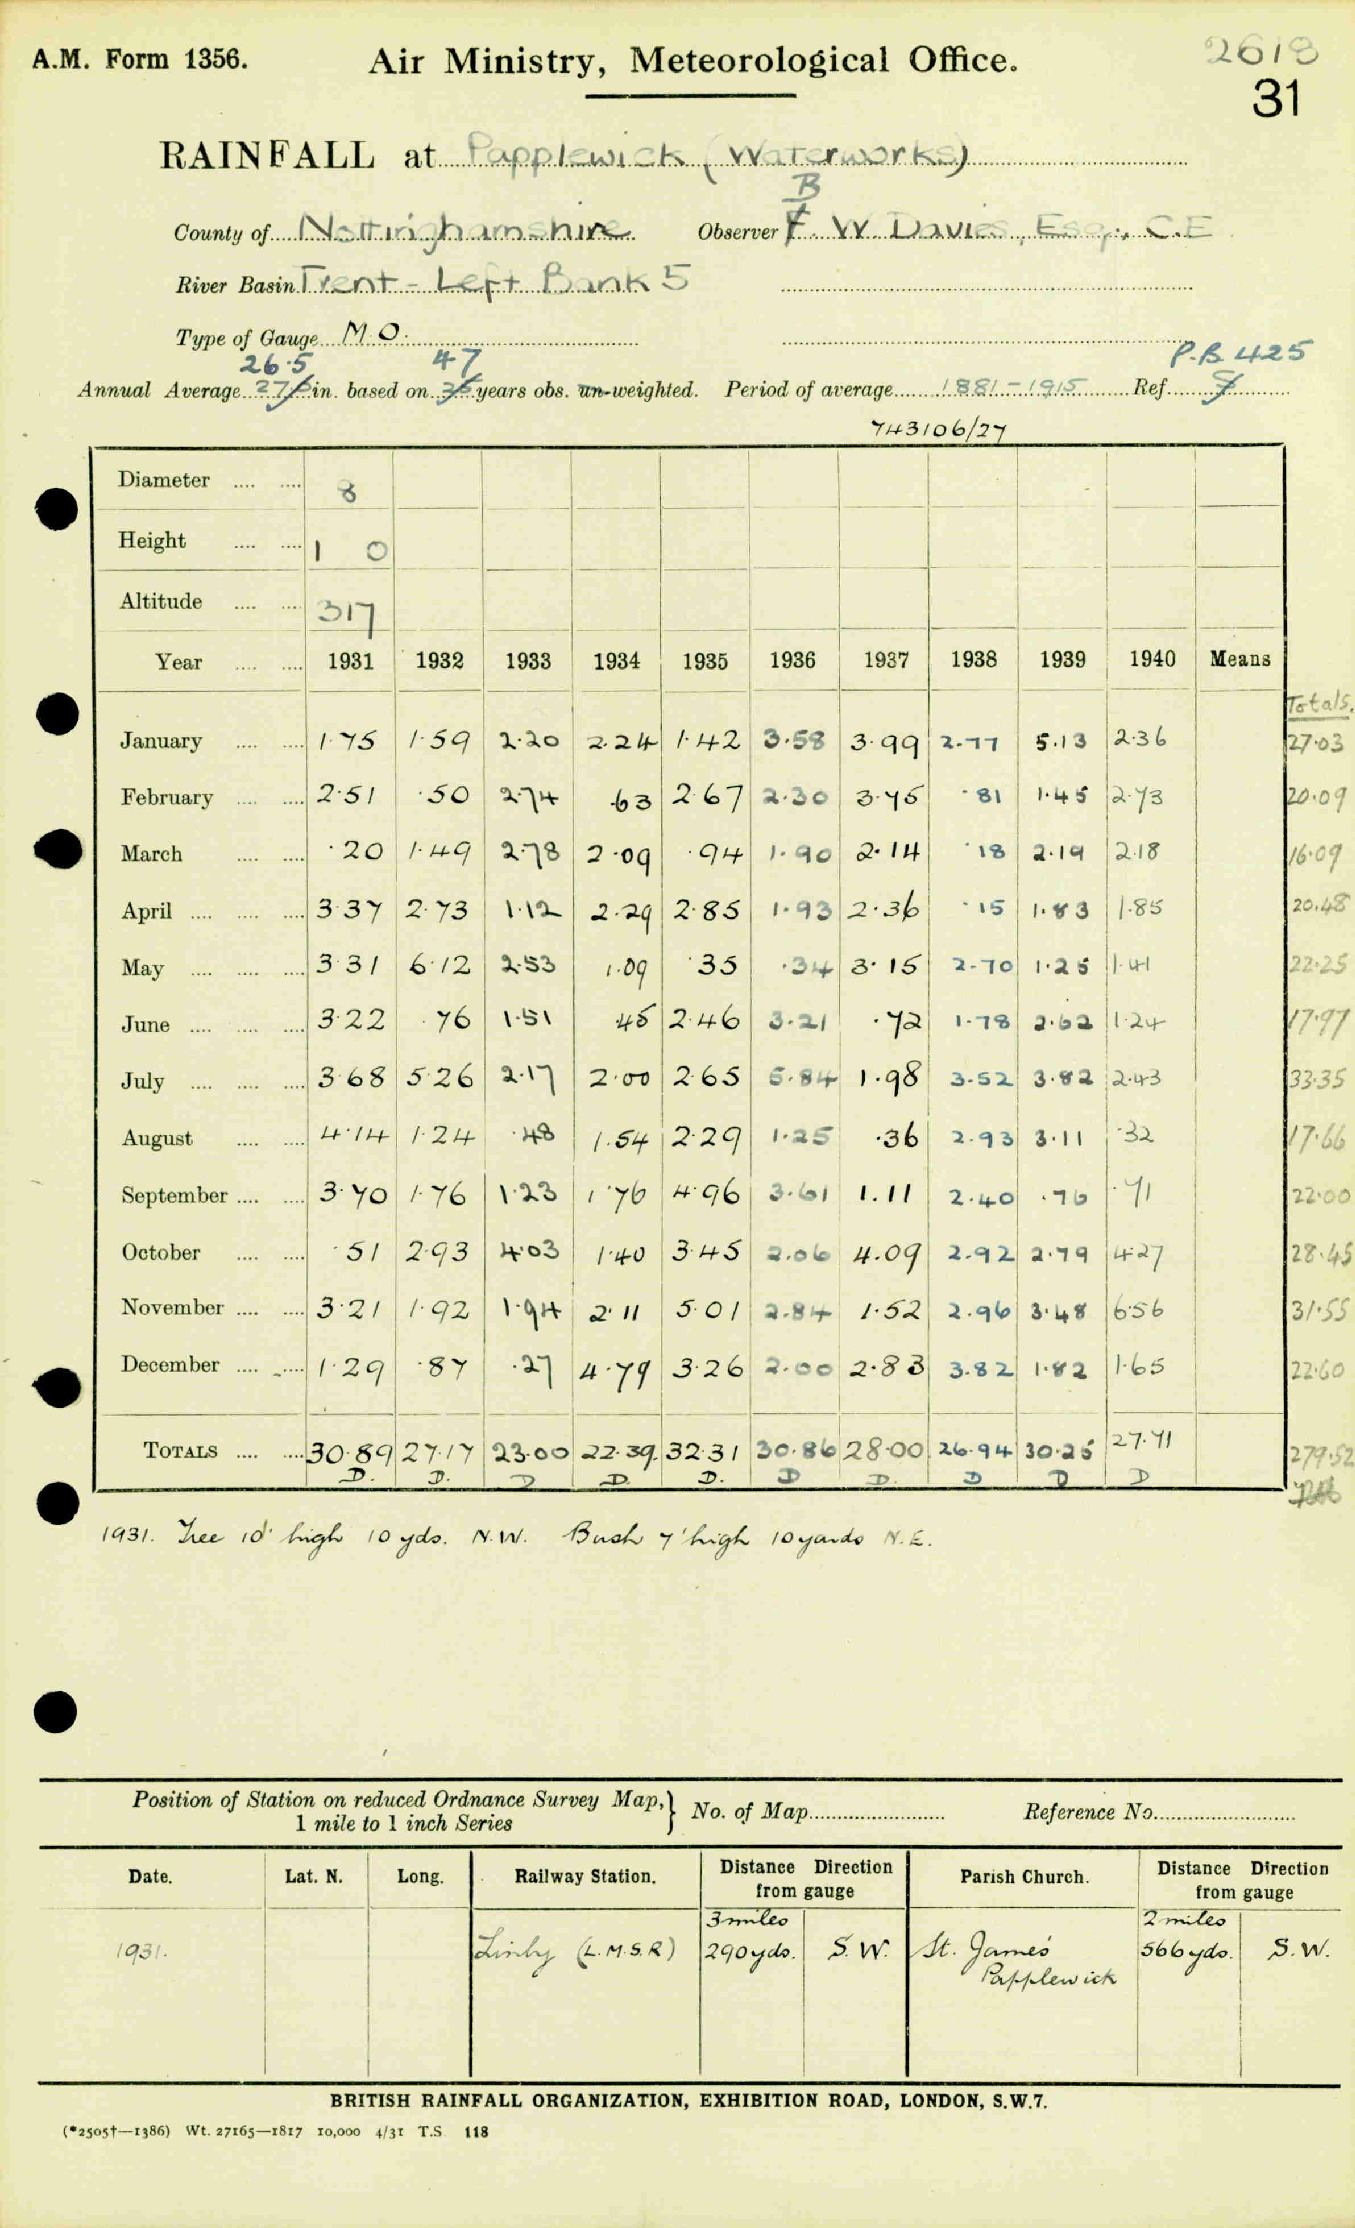 A.M. Form 1356. Air Ministry, Meteorological Office. 2618
31
RAINFALL at Papplewick (Waterworks)
B
County of Nottinghamshire Observer F. W. Davies, Esq., C.E.
River Basin Trent - Left Bank 5
Type of Gauge M.O.
26.5 47 P.B. 425
Annual Average in. based on 35 years obs. un-weighted. Period of average 1881-1915 Ref.
743106/27
Diameter 8
Height 1 0
Altitude 317
Year 1931 1932 1933 1934 1935 1936 1937 1938 1939 1940 Means
Totals.
January 1.75 1.59 2.20 2.24 1.42 3.58 3.99 2.77 5.13 2.36 27.03
February 2.51 .50 2.74 .63 2.67 2.30 3.75 .81 1.45 2.73 20.09
March .20 1.49 2.78 2.09 .94 1.90 2.14 .18 2.19 2.18 16.09
April 3.37 2.73 1.12 2.29 2.85 1.93 2.36 .15 1.83 1.85 20.48
May 3.31 6.12 2.53 1.09 .35 .34 3.15 2.70 1.25 1.41 22.25
June 3.22 .76 1.51 .45 2.46 3.21 .72 1.78 2.62 1.24 17.97
July 3.68 5.26 2.17 2.00 2.65 5.84 1.98 3.52 3.82 2.43 33.35
August 4.14 1.24 .48 1.54 2.29 1.25 .36 2.93 3.11 .32 17.66
September 3.70 1.76 1.23 1.76 4.96 3.61 1.11 2.40 .76 .71 22.00
October .51 2.93 4.03 1.40 3.45 2.06 4.09 2.92 2.79 4.27 28.45
November 3.21 1.92 1.94 2.11 5.01 2.84 1.52 2.96 3.48 6.56 31.55
December 1.29 .87 .27 4.79 3.26 2.00 2.83 3.82 1.82 1.65 22.60
TOTALS 30.89 27.17 23.00 22.39 32.31 30.86 28.00 26.94 30.25 27.71 279.52
D. D. D D D. D D. D D D
1931. Tree 10' high 10 yds. N.W. Bush 7' high 10 yards N.E.
Position of Station on reduced Ordnance Survey Map,
1 mile to 1 inch Series } No. of Map Reference No.
Date. Lat. N. Long. Railway Station. Distance Direction from gauge Parish Church. Distance Direction from gauge
3 miles 2 miles
1931. Linby (L.M.S.R) 290 yds. S.W. St. James 566 yds. S.W.
Papplewick
BRITISH RAINFALL ORGANIZATION, EXHIBITION ROAD, LONDON, S.W.7.
(*2505†—1386) Wt. 27165—1817 10,000 4/31 T.S. 118